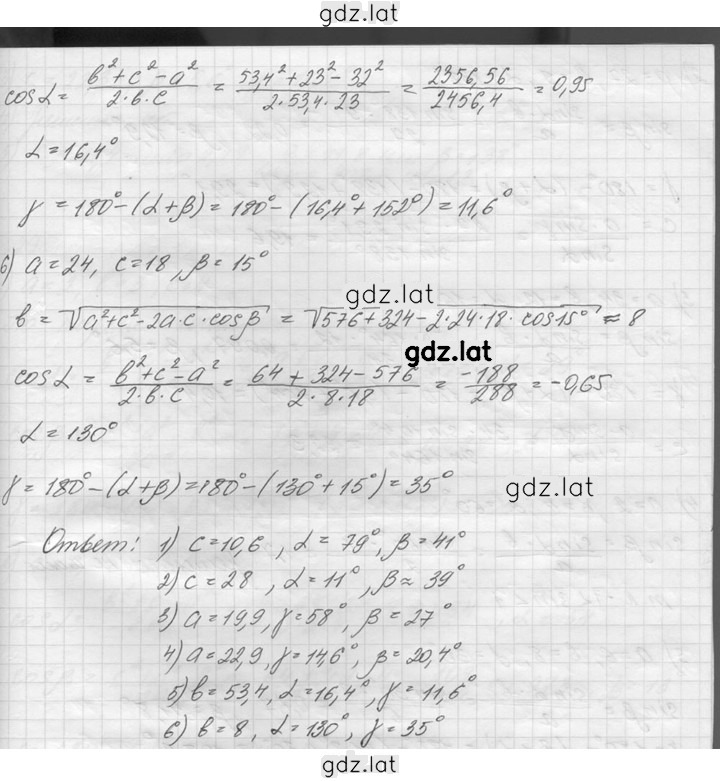 gdz.lat
cosα = (b²+c²-a²)/(2·b·c) = (53,4²+23²-32²)/(2·53,4·23) = 2356,56/2456,4 = 0,95
α = 16,4°
γ = 180°-(α+β) = 180°-(16,4°+152°) = 11,6°
6) a = 24, c = 18, β = 15°
gdz.lat
b = √(a²+c²-2a·c·cosβ) = √(576+324-2·24·18·cos15°) ≈ 8
gdz.lat
cosα = (b²+c²-a²)/(2·b·c) = (64+324-576)/(2·8·18) = -188/288 = -0,65
α = 130°
γ = 180°-(α+β) = 180°-(130°+15°) = 35°
gdz.lat
Ответ: 1) c = 10,6, α = 79°, β = 41°
2) c = 28, α = 11°, β ≈ 39°
3) a = 19,9, γ = 58°, β = 27°
4) a = 22,9, γ = 14,6°, β = 20,4°
5) b = 53,4, α = 16,4°, γ = 11,6°
6) b = 8, α = 130°, γ = 35°
gdz.lat